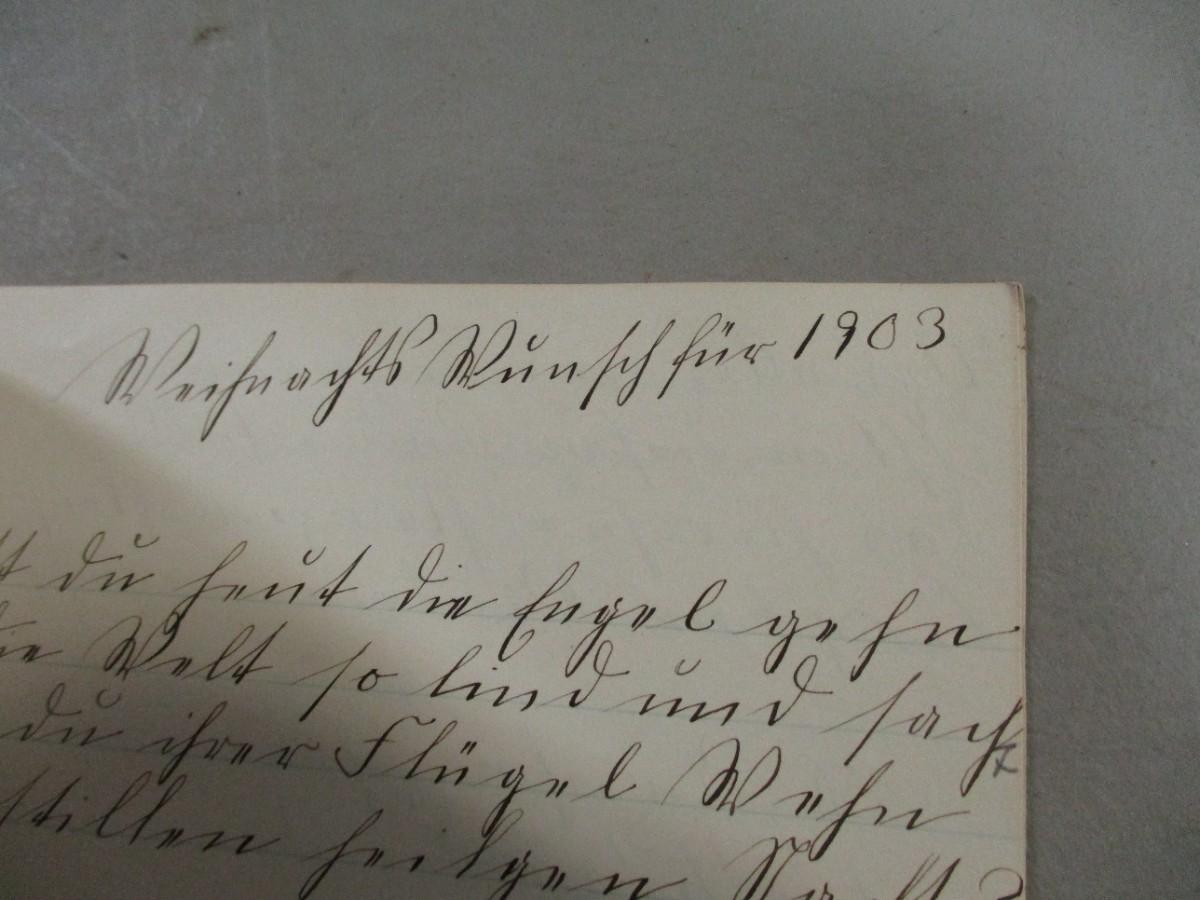 Weihnachts Wunsch für 1903
du heut die Engel gehn
die Welt so lind und sacht
du ihrer Flügel Wehn
stillen heilgen Nacht?